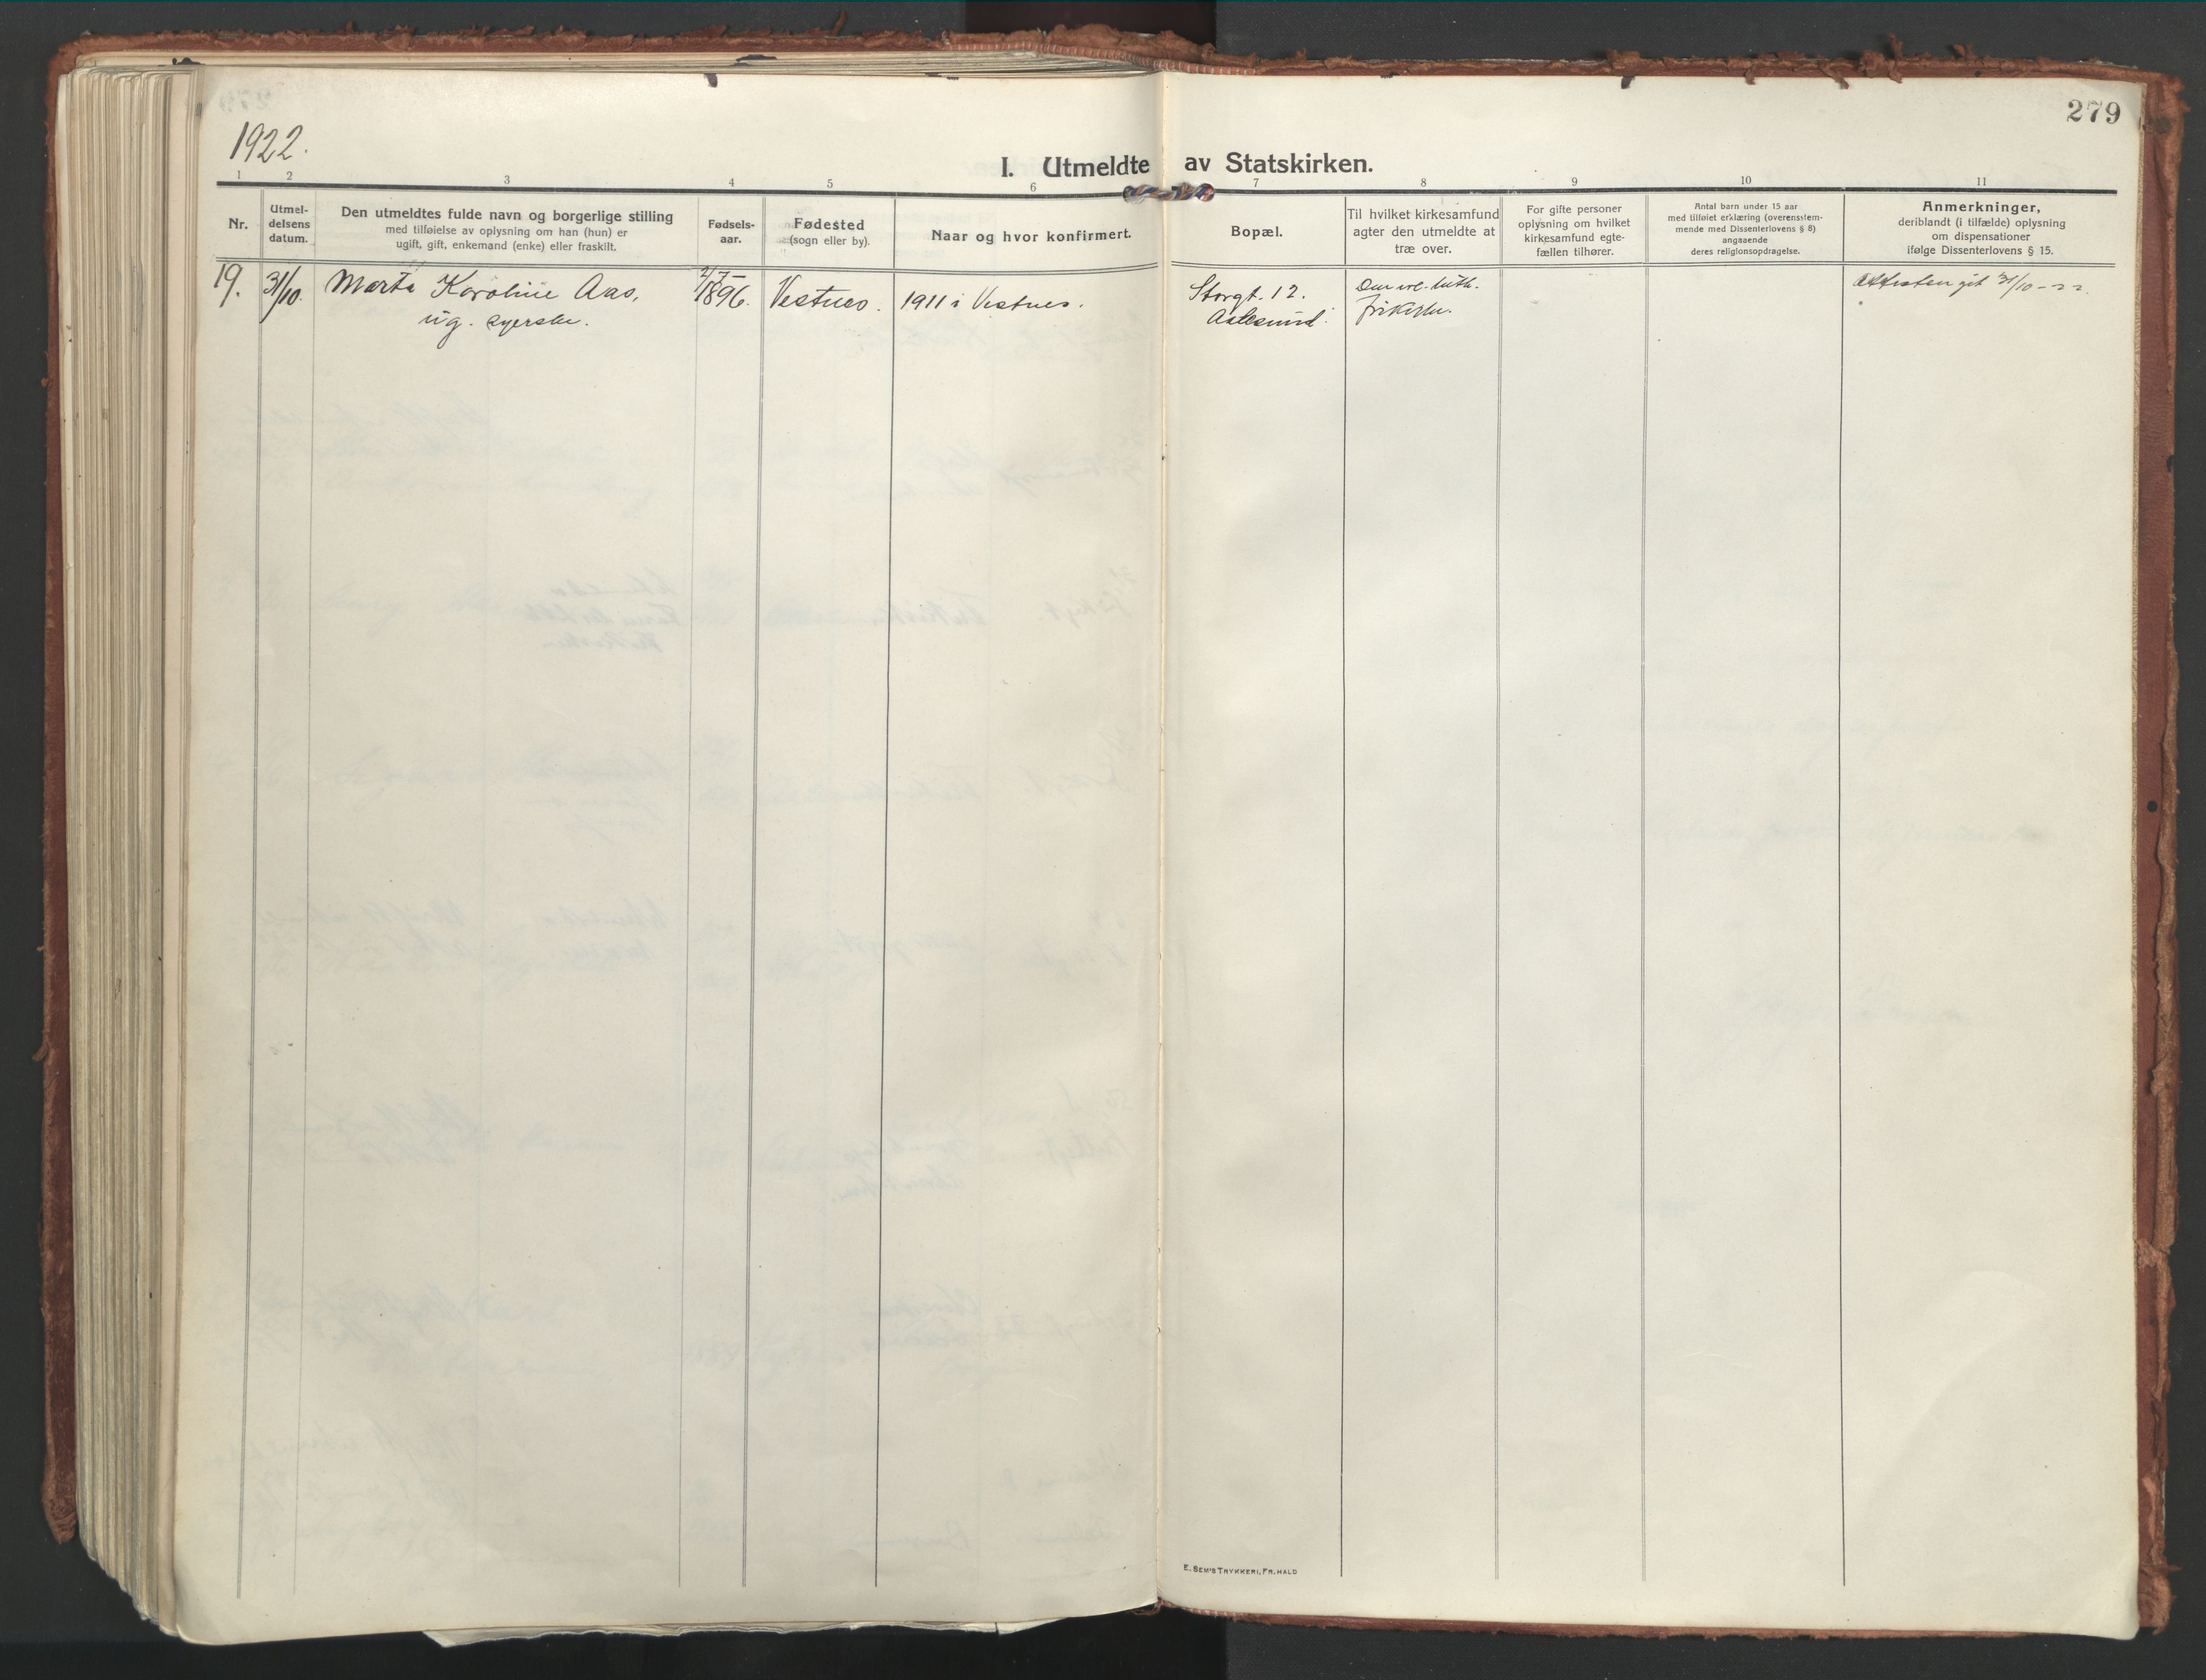 279
1922.
I. Utmeldte av Statskirken.
1 2 3 4 5 6 7 8 9 10 11
Nr.
Utmel-
delsens
datum.
Den utmeldtes fulde navn og borgerlige stilling
med tilføielse av oplysning om han (hun) er
ugift, gift, enkemand (enke) eller fraskilt.
Fødsels-
aar.
Fødested
(sogn eller by).
Naar og hvor konfirmert.
Bopæl.
Til hvilket kirkesamfund
agter den utmeldte at
træ over.
For gifte personer
oplysning om hvilket
kirkesamfund egte-
fællen tilhører.
Antal barn under 15 aar
med tilføiet erklæring (overensstem-
mende med Dissenterlovens § 8)
angaaende
deres religionsopdragelse.
Anmerkninger,
deriblandt (i tilfælde) oplysning
om dispensationer
ifølge Dissenterlovens § 15.
19.
31/10.
Marta Karoline Aas,
ug. syerske.
2/7-
1896.
Vestnes.
1911 i Vestnes.
Storgt. 12.
Aalesund.
Den ev.-luth.
frikirke.
Attesten git 31/10-22
E. SEM'S TRYKKERI, FR. HALD